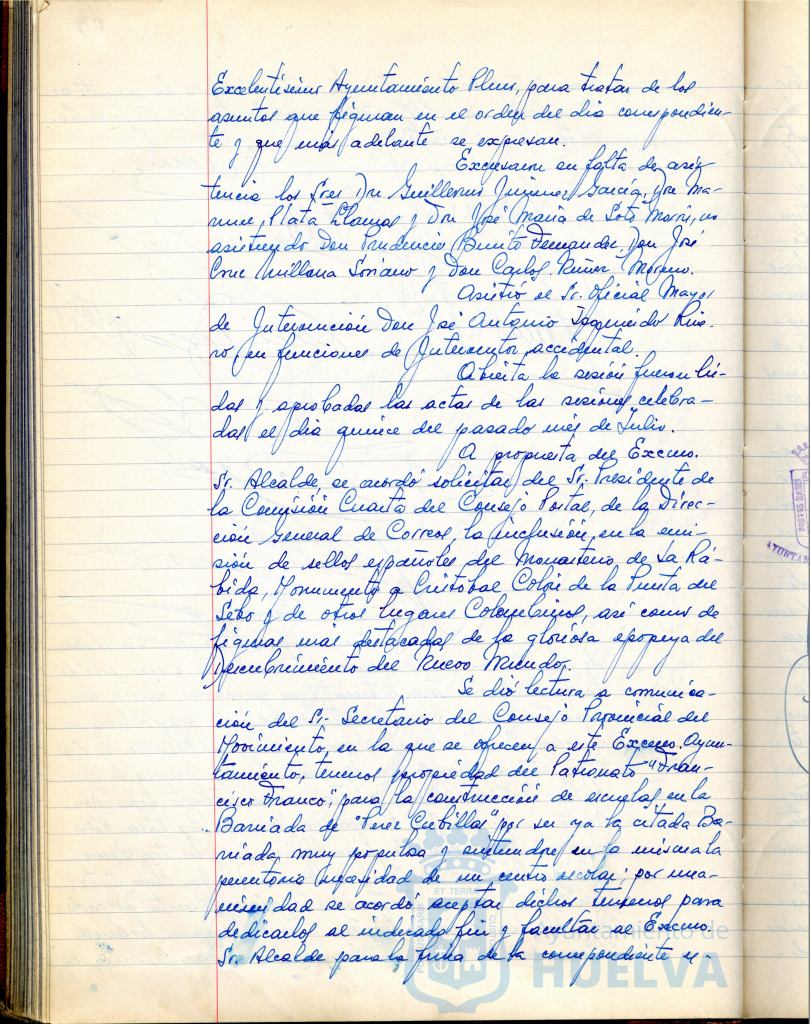 Excelentísimo Ayuntamiento Pleno, para tratar de los
asuntos que figuran en el orden del día correspondien-
te y que más adelante se expresan.
Excusaron su falta de asis-
tencia los Sres Don Guillermo Jiménez García, Don Ma-
nuel Plata Llamas y Don José María de Soto Morris, no
asistiendo Don Prudencio Benito Fernandez, Don José
Cruz Millana Soriano y Don Carlos Núñez Moreno.
Asistió el Sr. Oficial Mayor
de Intervención Don José Antonio Izquierdo Rive-
ro, en funciones de Interventor accidental.
Abierta la sesión fueron leí-
das y aprobadas las actas de las sesiones celebra-
das el día quince del pasado mes de Julio.
A propuesta del Excmo.
Sr. Alcalde, se acordó solicitar del Sr. Presidente de
la Comisión Cuarta del Consejo Postal, de la Direc-
ción General de Correos, la inclusión, en la emi-
sión de sellos españoles del Monasterio de La Rá-
bida, Monumento a Cristóbal Colón de la Punta del
Sebo y de otros lugares Colombinos, así como de
figuras más destacadas de la gloriosa epopeya del
Descubrimiento del Nuevo Mundo.
Se dió lectura a comunica-
ción del Sr. Secretario del Consejo Provincial del
Movimiento, en la que se ofrecen a este Excmo. Ayun-
tamiento, terrenos propiedad del Patronato "Fran-
cisco Franco", para la construcción de escuelas en la
Barriada de "Perez Cubillas" por ser ya la citada Ba-
rriada, muy populosa y en la misma la
perentoria necesidad de un centro escolar; por una-
nimidad se acordó aceptar dichos terrenos para
dedicarlos al indicado fin y facultar al Excmo.
Sr. Alcalde para la firma de la correspondiente es-
Ayuntamiento de
HUELVA